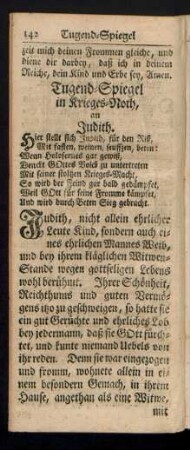 142 Tugend-Spiegel
zeit mich deinen Frommen gleiche, und
diene dir darbey, daß ich in deinem
Reiche, dein Kind und Erbe sey, Amen.
Tugend-Spiegel
in Krieges-Noth,
an
Judith.
Hier stellt sich Judith, für den Riß,
Mit fasten, weinen, seuffzen, beten:
Wenn Holofernes gar gewiß,
Denckt GOttes Volck zu untertreten
Mit seiner stoltzen Krieges-Macht.
So wird der Feind gar bald gedämpfet,
Weil GOtt für seine Fromme kämpfet,
Und wird durch Beten Sieg gebracht.
Judith, nicht allein ehrlicher
Leute Kind, sondern auch ei-
nes ehrlichen Mannes Weib,
und bey ihrem kläglichen Witwen-
Stande wegen gottseligen Lebens
wohl berühmt. Ihrer Schönheit,
Reichthums und guten Vermö-
gens itzo zu geschweigen, so hatte sie
ein gut Gerüchte und ehrliches Lob
bey jedermann, daß sie GOtt fürch-
tet, und kunte niemand Uebels von
ihr reden. Denn sie war eingezogen
und fromm, wohnete allein in ei-
nem besondern Gemach, in ihrem
Hause, angethan als eine Witwe,
mit